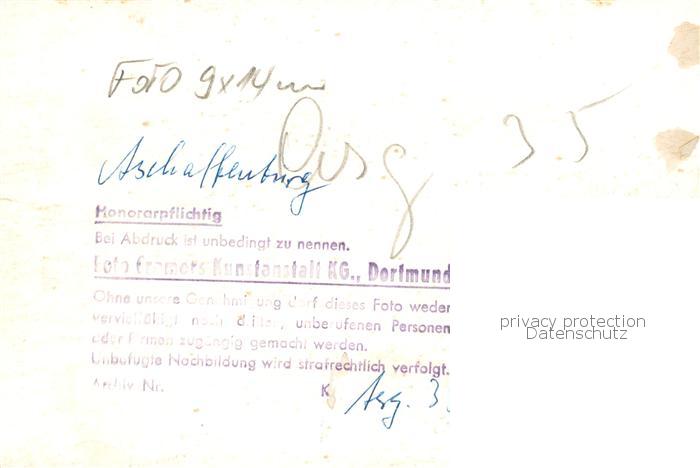 Foto 9x14 cm
Ausg 35
Aschaffenburg
Honorarpflichtig
Bei Abdruck ist unbedingt zu nennen.
Foto Cramers Kunstanstalt KG., Dortmund
Ohne unsere Genehmigung darf dieses Foto weder
vervielfältigt noch dritten, unberufenen Personen
oder Firmen zugängig gemacht werden.
Unbefugte Nachbildung wird strafrechtlich verfolgt.
Archiv Nr. K
privacy protection
Datenschutz